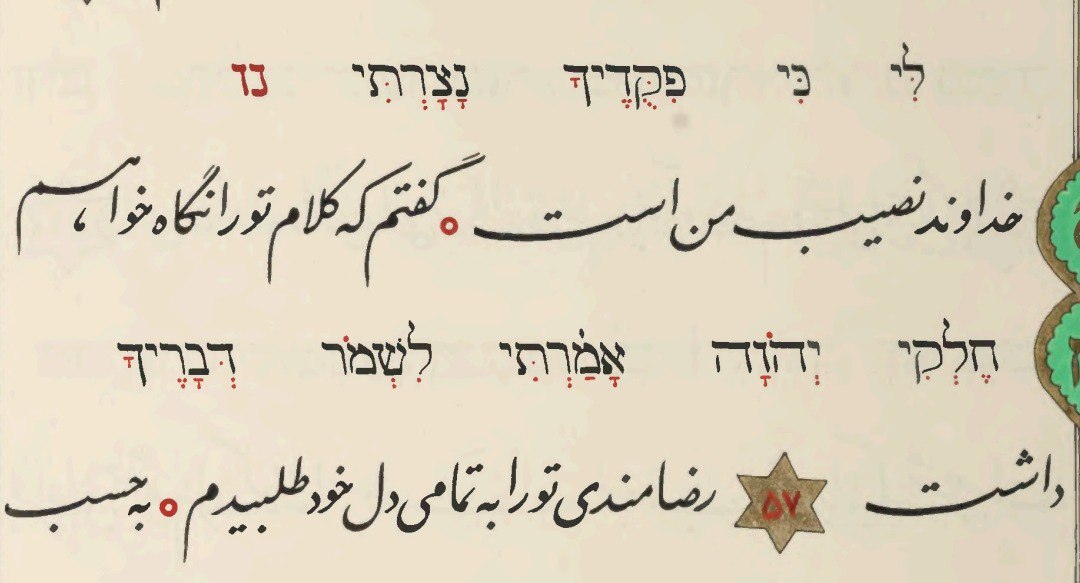 לִּי כִּי פִקֻּדֶיךָ נָצָרְתִּי נו
خداوند نصیب من است ○ گفتم که کلام تو را نگاه خواهم ،
חֶלְקִי יְהוָֹה אָמַרְתִּי לִשְׁמֹר דְּבָרֶיךָ
داشت ۵۷ رضامندی تو را به تمامی دل خود طلبیدم ○ به حسب